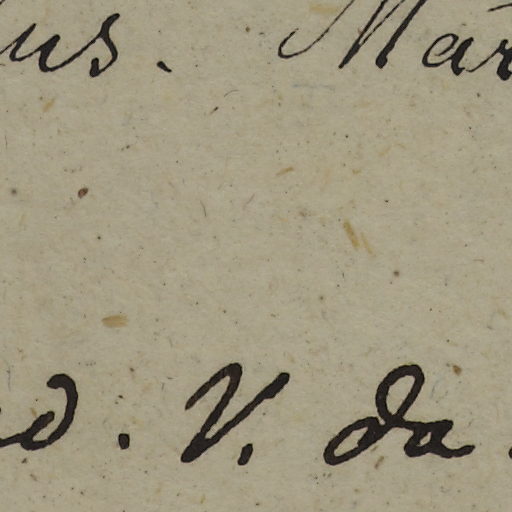 us. Mar
d. V. da